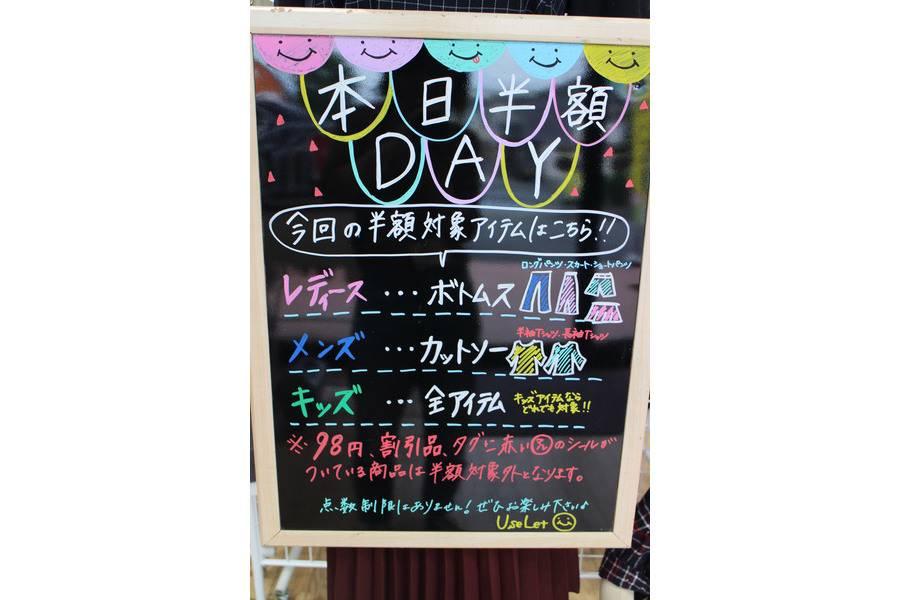 本日半額
DAY
今回の半額対象アイテムはこちら!!
ロングパンツ・スカート・ショートパンツ
レディース ・・・ ボトムス
半袖Tシャツ・長袖Tシャツ
メンズ ・・・ カットソー
キッズ ・・・ 全アイテム
キッズアイテムなら
どれでも対象!!
※98円、割引品、タグに赤い のシールが
ついている商品は半額対象外となります。
点数制限はありません!ぜひお楽しみ下さい♪
UseLet